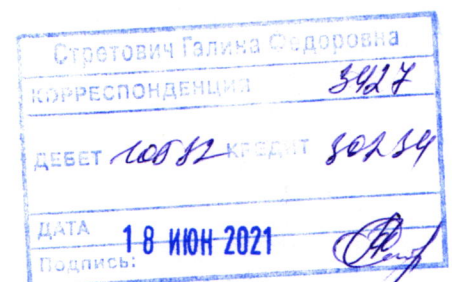 Стретович Галина Федоровна
КОРРЕСПОНДЕНЦИЯ 3427
ДЕБЕТ 10532 КРЕДИТ 30234
ДАТА 18 ИЮН 2021
Подпись: